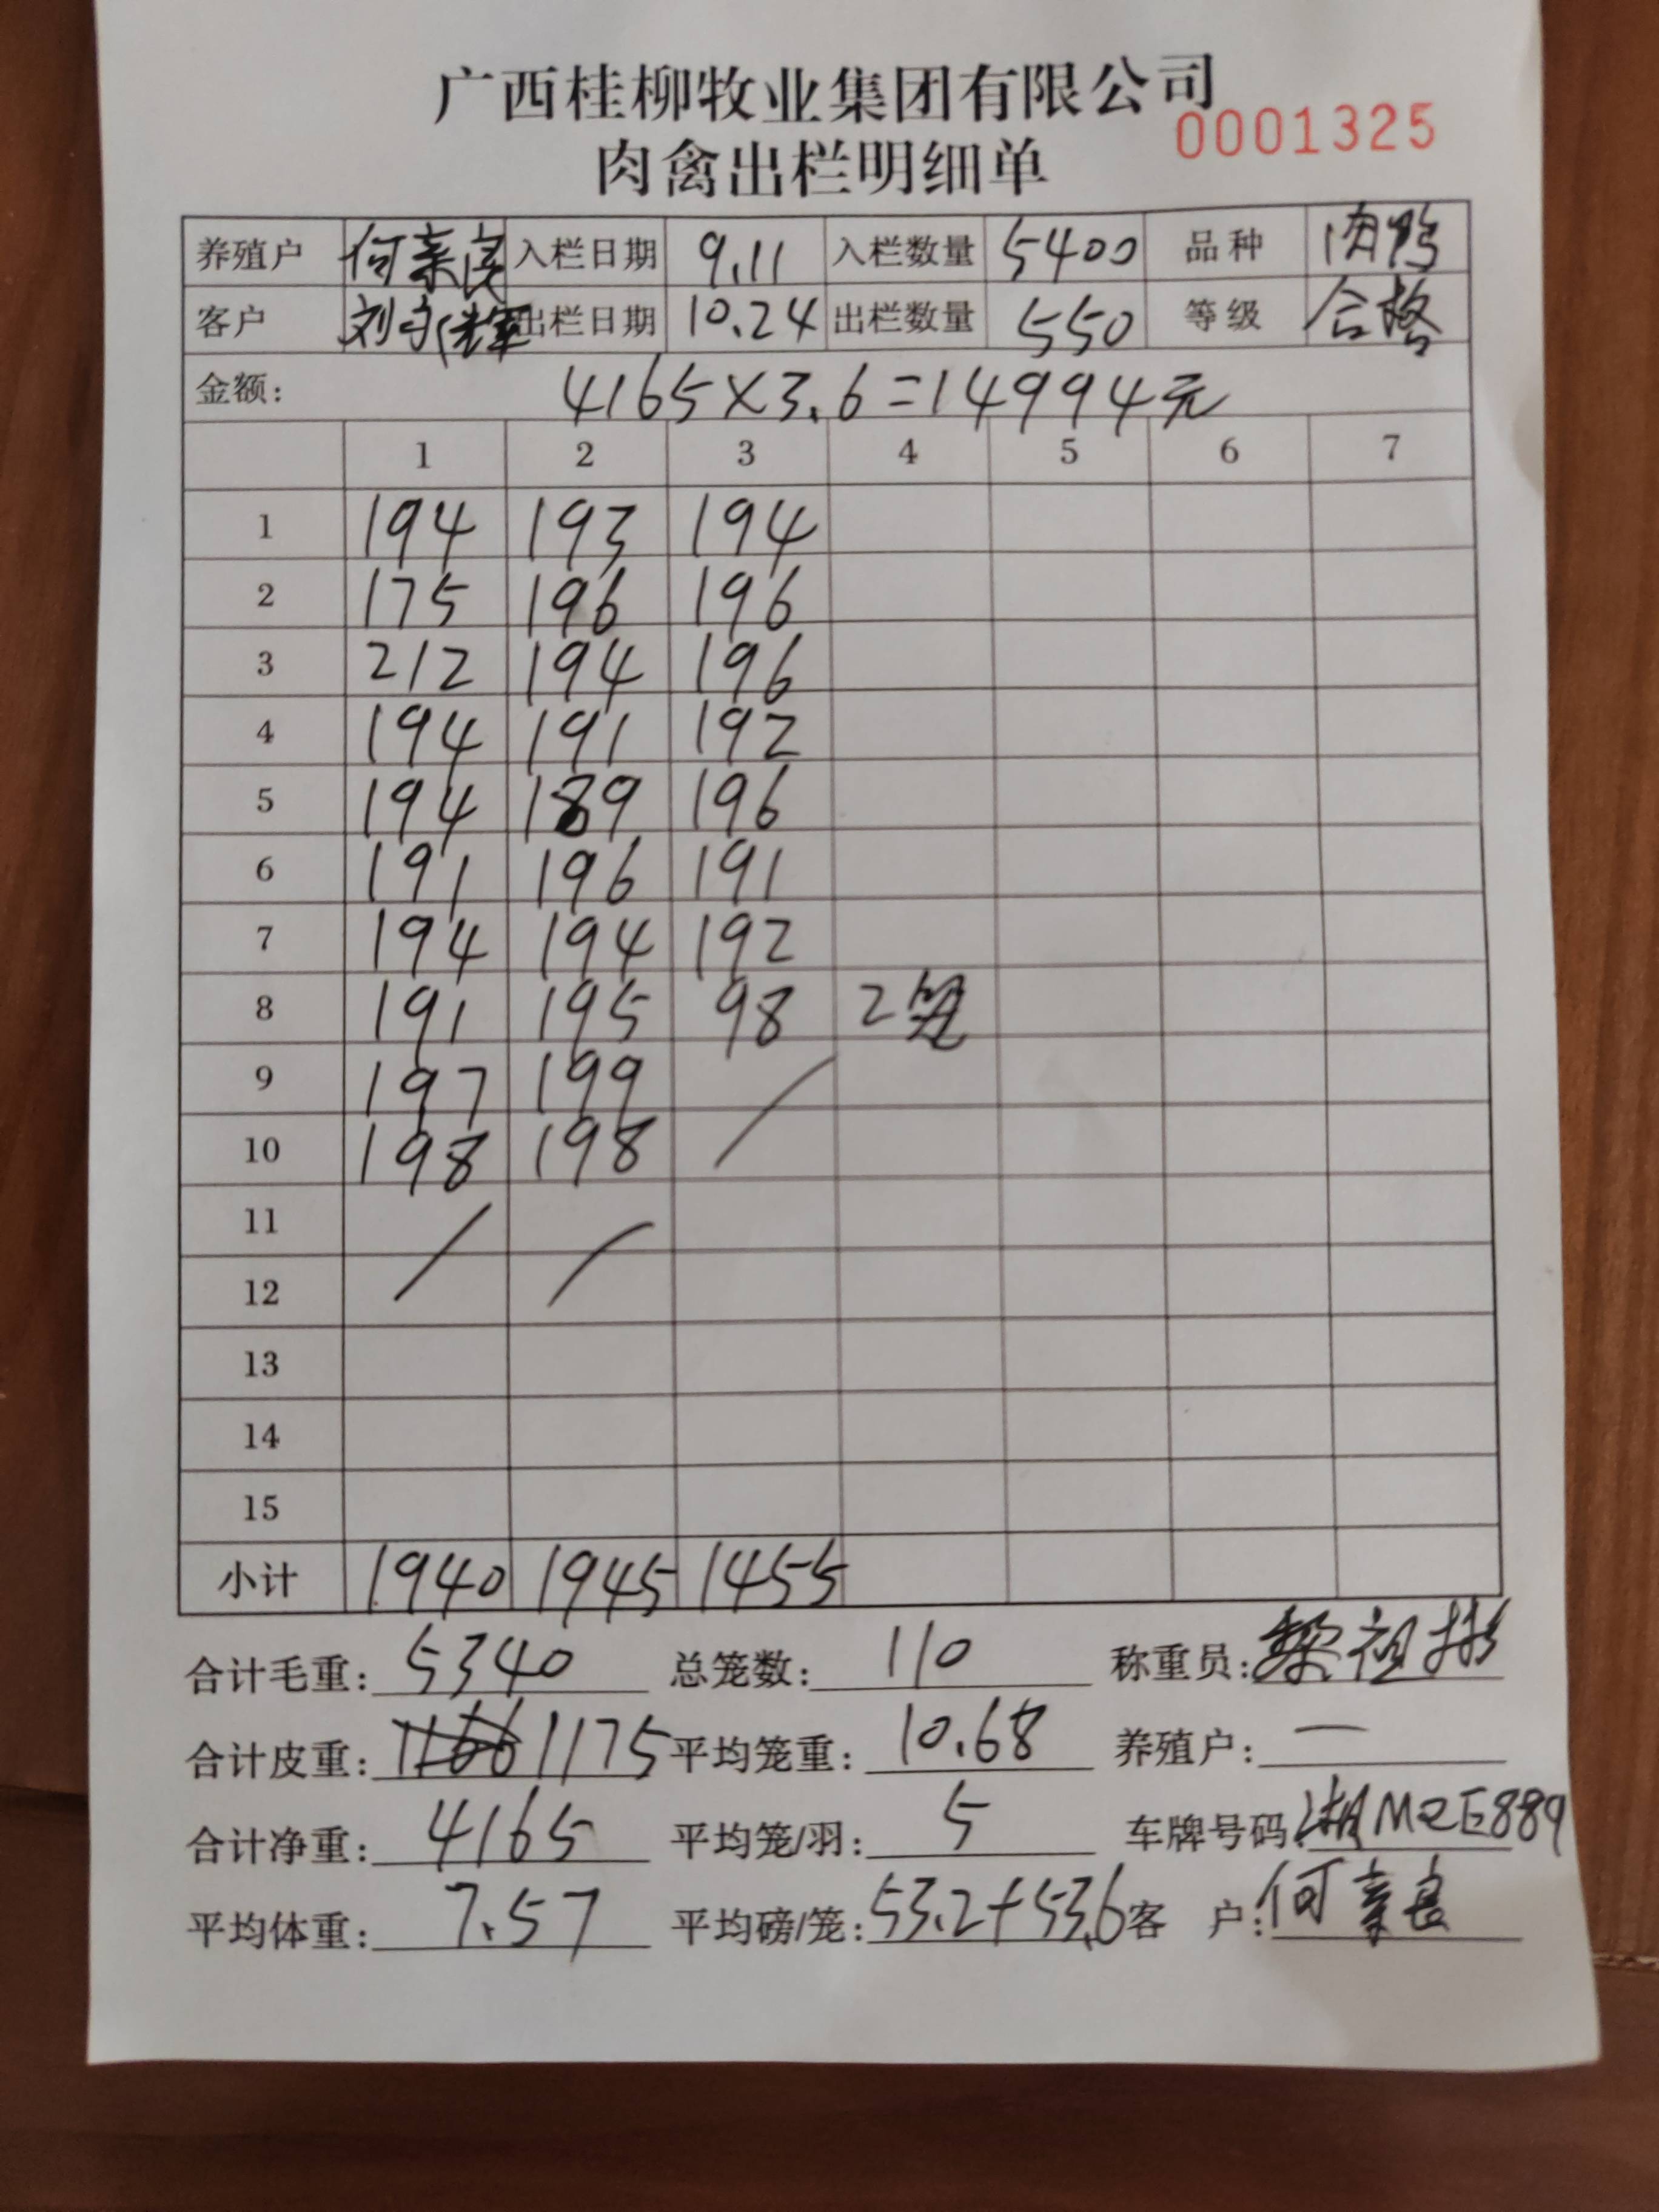 广西桂柳牧业集团有限公司
0001325
肉禽出栏明细单
养殖户 何亲良 入栏日期 9.11 入栏数量 5400 品种 肉鸭
客户 刘 辉 出栏日期 10.24 出栏数量 550 等级 合格
金额: 4165×3.6=14994元
1 2 3 4 5 6 7
1 194 193 194
2 175 196 196
3 212 194 196
4 194 191 192
5 194 189 196
6 191 196 191
7 194 194 192
8 191 195 98 2笼
9 197 199
10 198 198
11
12
13
14
15
小计 1940 1945 1455
合计毛重: 5340 总笼数: 110 称重员: 黎祖彬
合计皮重: 1175 平均笼重: 10.68 养殖户: 一
合计净重: 4165 平均笼/羽: 5 车牌号码 湘M2E889
平均体重: 7.57 平均磅/笼: 53.2+53.6 客 户: 何亲良